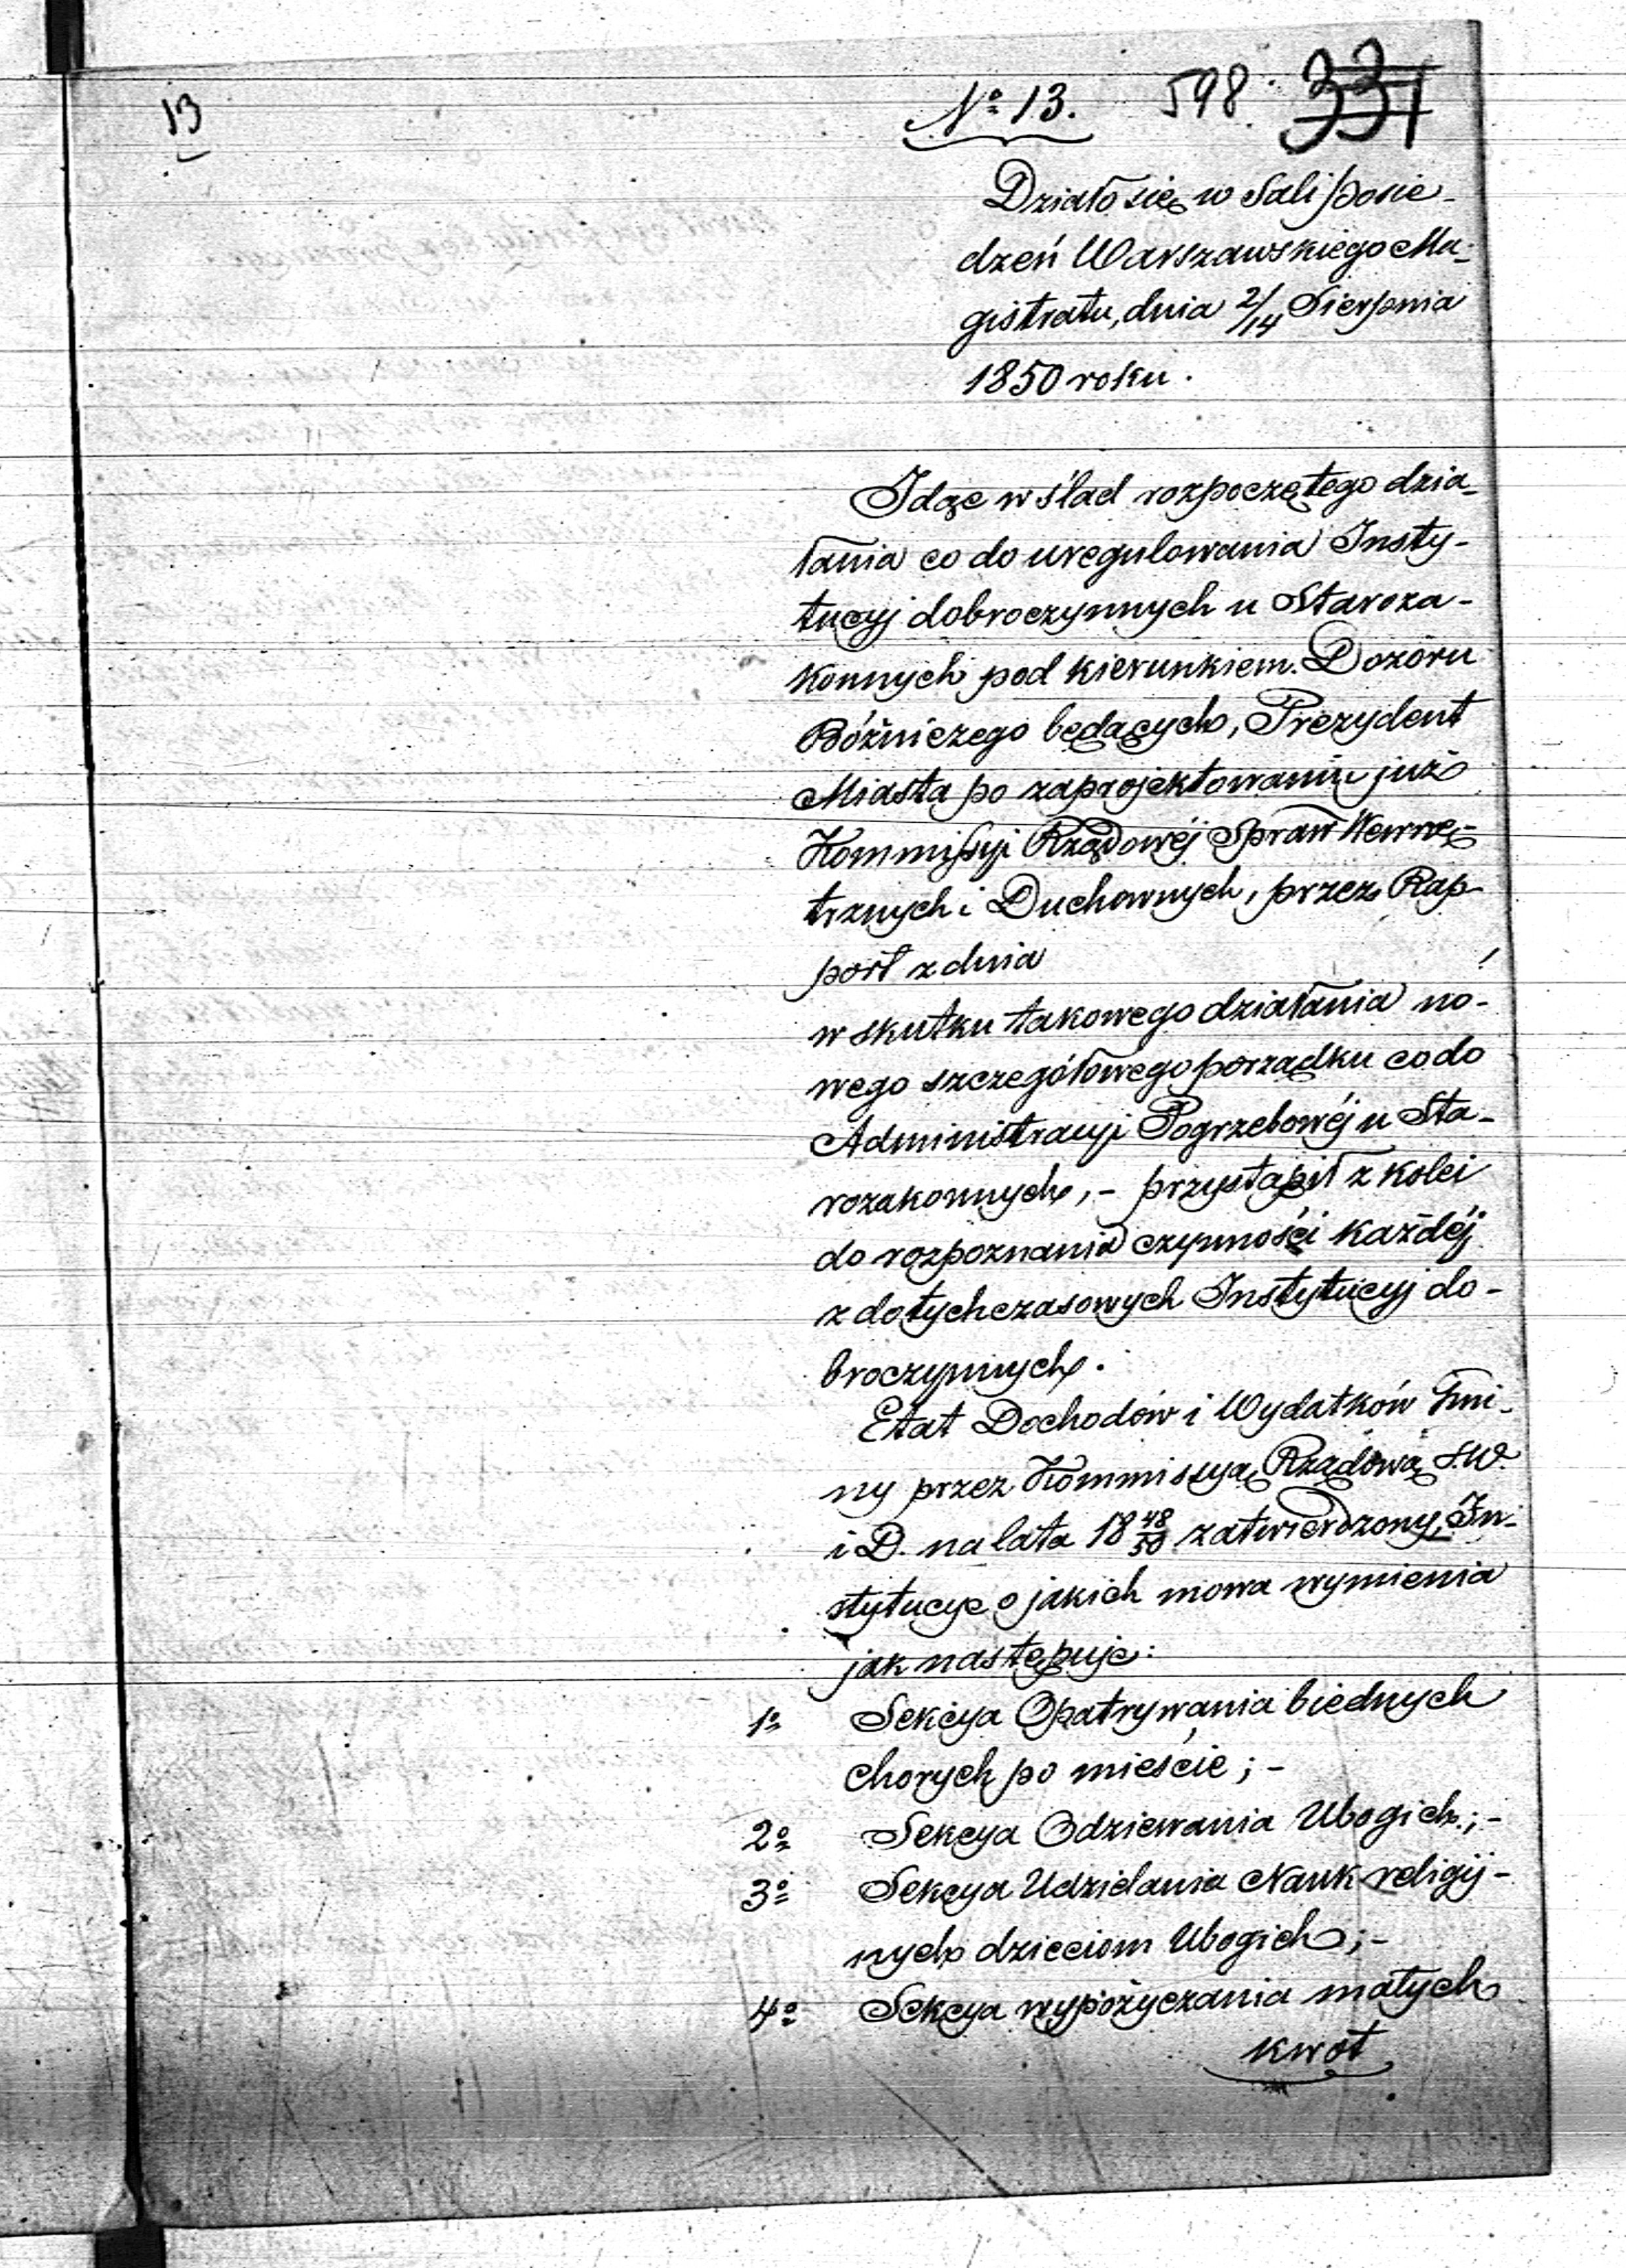 13
№ 13. 598. 331
Działo się w Sali posie-
dzeń Warszawskiego Ma-
gistratu, dnia 2/14 Sierpnia
1850 roku.
Idąc w ślad rozpoczętego dzia-
łania co do uregulowania Insty-
tucyj dobroczynnych u Staroza-
konnych pod kierunkiem Dozoru
Bóżniczego będących, Prezydent
Miasta po zaprojektowaniu już
Kommissyi Rządowéj Spraw Wewnę-
trznych i Duchownych, przez Rap-
port z dnia
w skutku takowego działania no-
wego szczegółowego porządku co do
Administracyi Pogrzebowéj u Sta-
rozakonnych, - przystąpił z kolei
do rozpoznania czynności każdéj
z dotychczasowych Instytucyj do-
broczynnych.
Etat Dochodów i Wydatków Gmi-
ny przez Kommissyą Rządową S.W.
i D. na lata 18 48/50 zatwierdzony, In-
stytucye o jakich mowa wymienia
jak następuje:
1o Sekcya Opatrywania biednych
chorych po mieście; -
2o Sekcya Odziewania Ubogich; -
3o Sekcya Udzielania Nauk religij-
nych dzieciom Ubogich; -
4o Sekcya wypożyczania małych
kwot